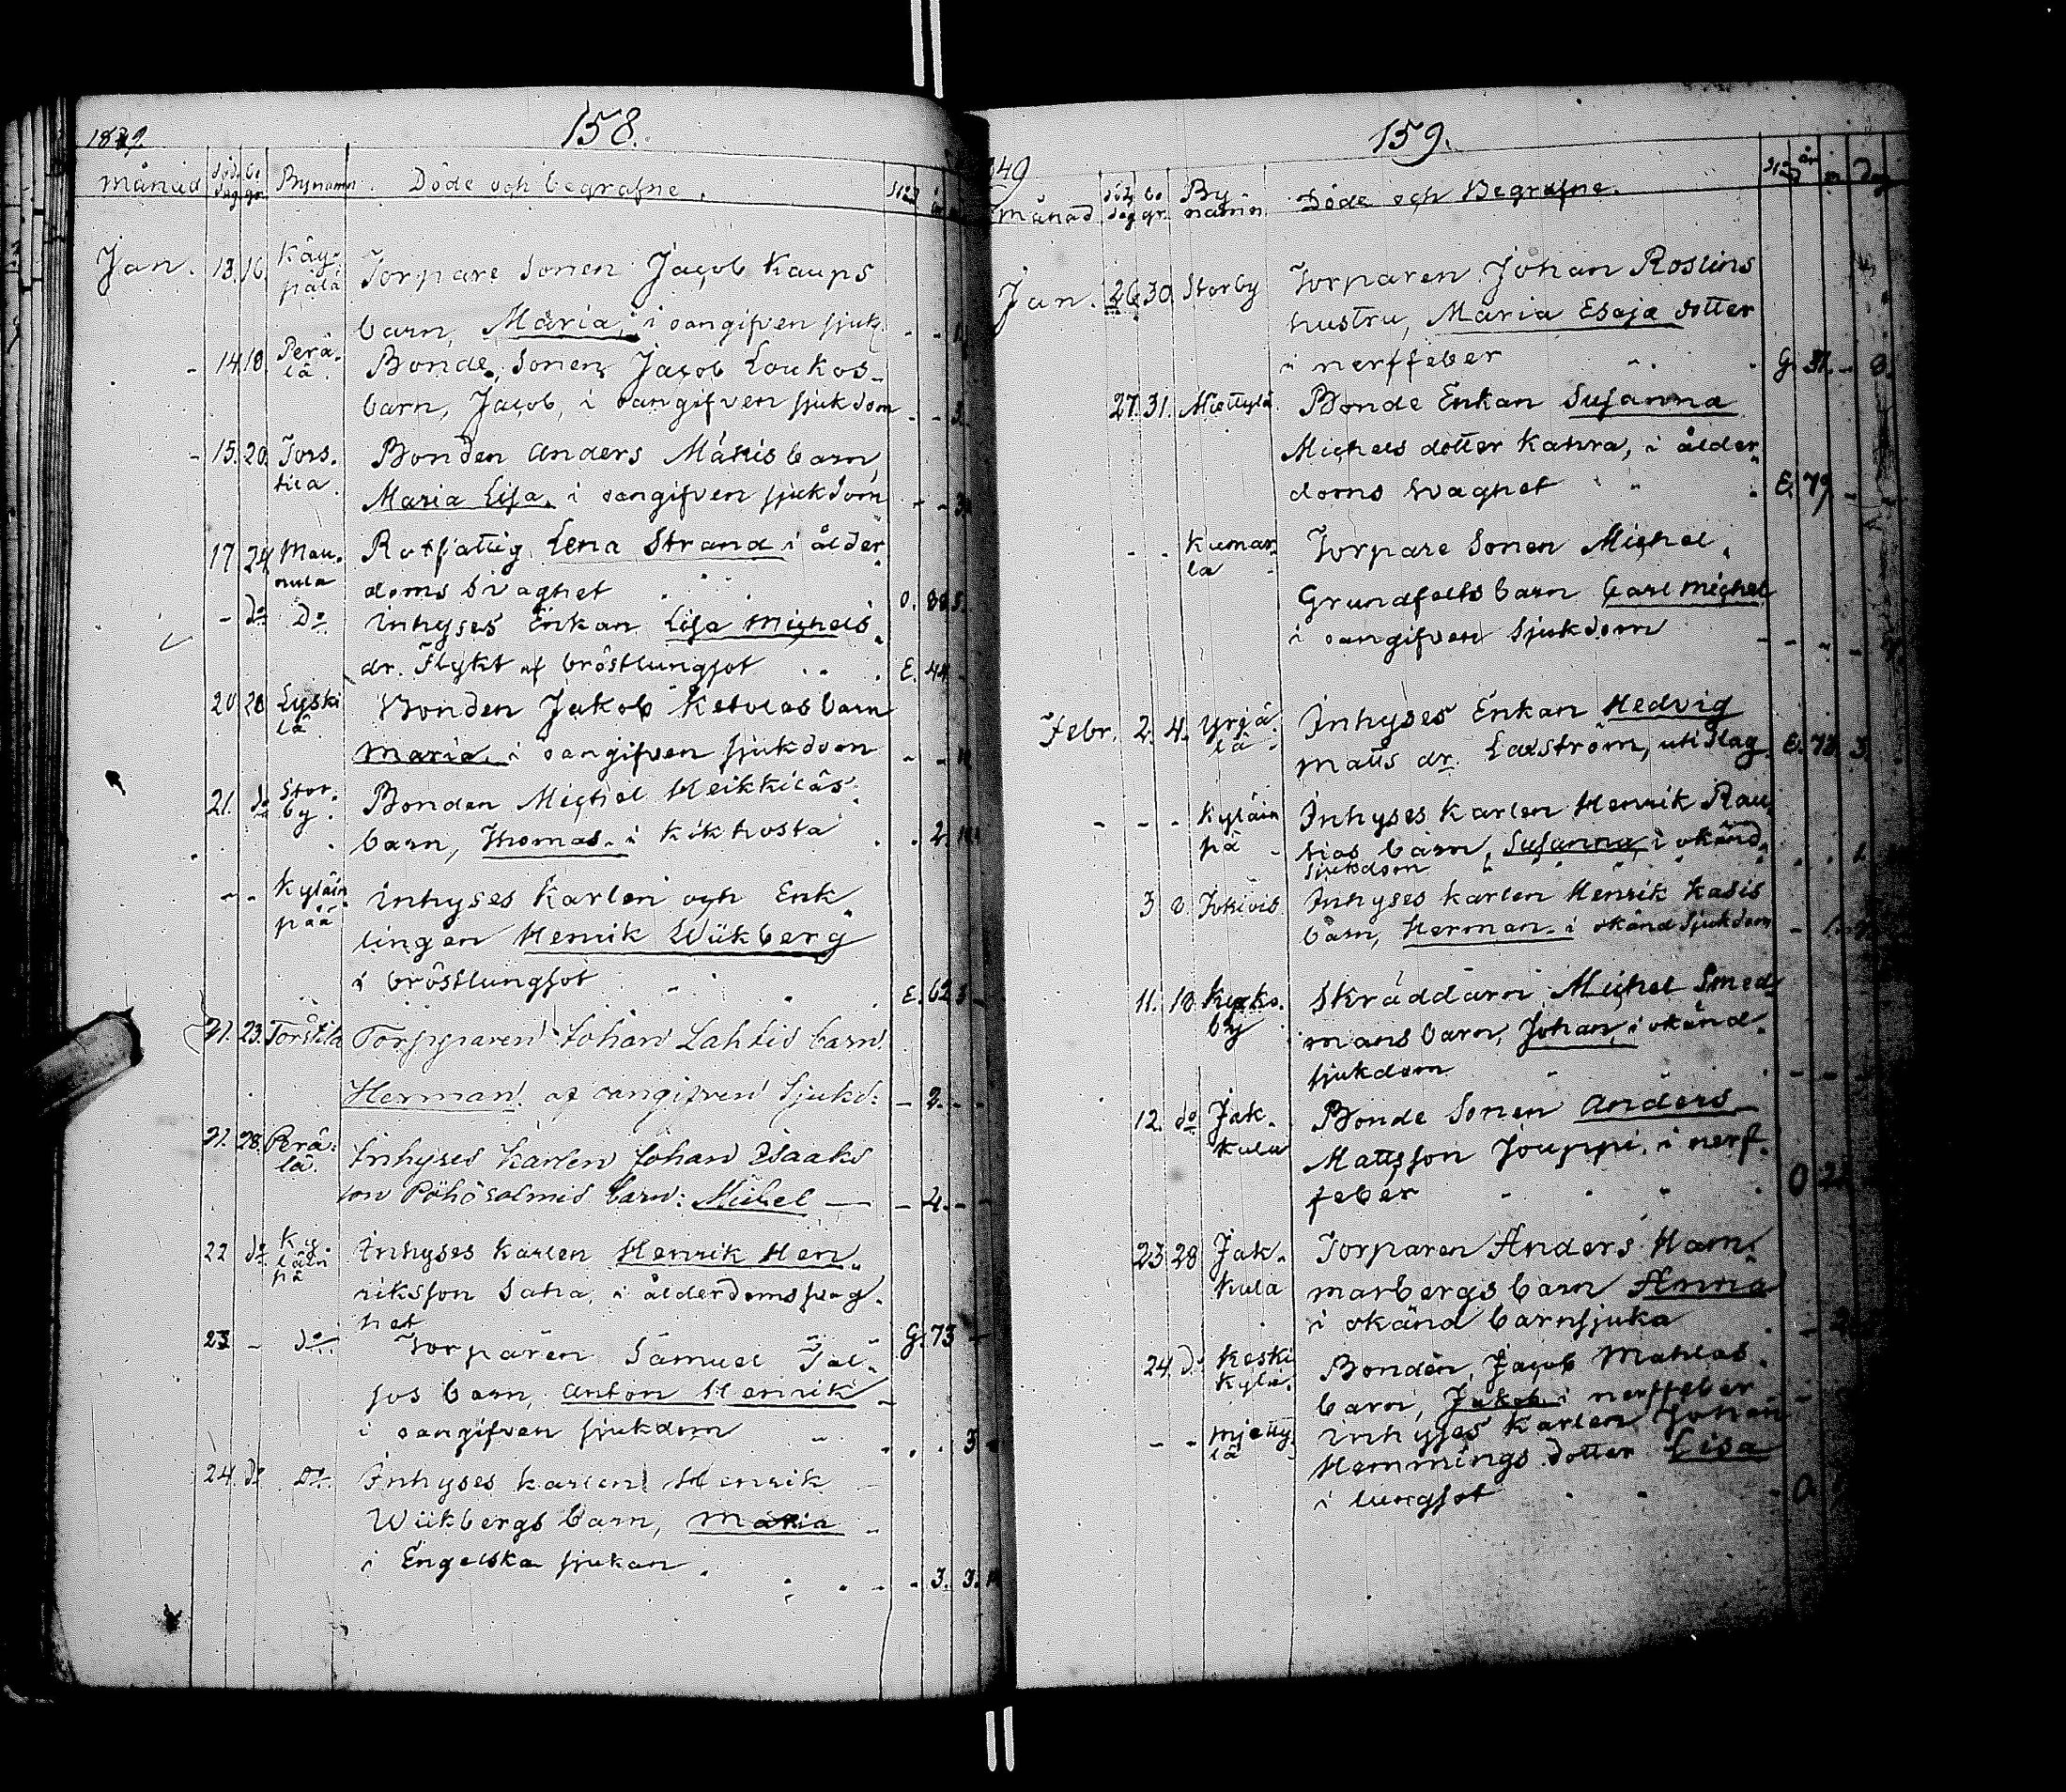 1849.
158.
Månad död dag be gr. Bynamn. Döde och begrafne. Stånd år
Jan. 13. 16. Käy- Torpare Sonen Jacob Kaups
pälä barn, Maria, i oangifven sjuk.
- 14. 18. Perä- Bonde Sonen Jacob Loukos-
lä. barn, Jacob, i oangifven sjukdom - -
- 15. 20. Tors- Bonden Anders Mäkis barn,
tila. Maria Lisa, i oangifven sjukdom - -
17. 24. Mau- Rotfattig Lena Strand i ålder-
nula doms svaghet O. 88. 5.
- do Do Inhyses Enkan Lisa Michels
dr. Flykt af bröstlungsot E. 44. -
20 28 Lyski Bonden Jakob Ketolas barn
lä. Maria, i oangifven sjukdom - -
21. do Stor- Bonden Michel Heikkiläs
by. barn, Thomas, i kikhosta . . 2.
- - Kyläin- Inhyses Karlen och Enk-
pää lingen Henrik Wiikberg
i bröstlungsot E. 62. 3 -
21. 23. Torstila Torpparen Johan Lahtis barn
Herman, af oangifven sjukd: - 2. - -
21. 28. Perä- Inhyses Karlen Johan Isaaks
lä. son Pöhösalmis barn: Michel — - 4. - -
22 do Ky- Inhyses karlen Henrik Hen-
läin riksson Saha, i ålderdomssvag-
pä het G. 73 -
23 - do. Torparen Samuel Jal-
jos barn, Anton Henrik -
i oangifven sjukdom . . . 3
24. do Do. Inhyses karlen Henrik
Wiikbergs barn, Maria
i Engelska sjukan. - 3. 3.
159.
849
Månad död dag be gr. By namn. Döde och Begrafne. Stånd år m. Dag
Jan. 26. 30. Storby Torparen Johan Roslins
hustru, Maria Esaja dotter
i nerffeber G. 37. - 8.
27. 31. Miettylä. Bonde Enkan Susanna
Michels dotter Kahra, i ålder-
doms svaghet E. 79. -
- - Kumar- Torpare Sonen Michel
la Grundfelts barn Carl Michel
i oangifven sjukdom - - -
Febr. 2. 4. Yrjä- Inhyses Enkan Hedvig
lä. Matts dr. Laxström, uti slag. E. 73. 3.
- - - Kyläin Inhyses karlen Henrik Rau-
pä tios barn, Susanna, i okänd
sjukdom
3 8. Jokivis. Inhyses karlen Henrik Kasis
barn, Herman, i okänd sjukdom - 1.
11. 18. Kyrko- Skräddarn Michel Smed-
by. mans barn, Johan, i okänd
sjukdom - - -
12. do Jak- Bonde Sonen Anders
kula Mattsson Jouppi, i nerf-
feber O
23. 28 Jak- Torparen Anders Ham-
kula marbergs barn Anna
i okänd barnsjuka
24. do Keski Bonden Jacob Mahlas
kylä. barn, Jakob i nerffeber
- - Mjetty- Inhyses Karlen Johan
lä Hemmings dotter Lisa
i lungsot O